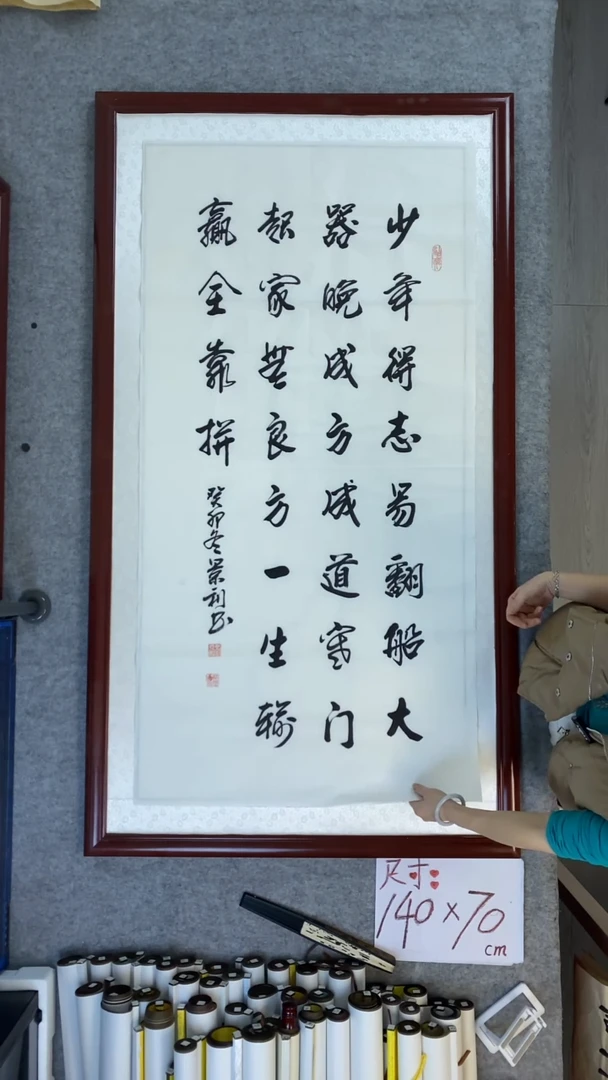 少年得志易翻船大
器晚成方成道寒门
起家无良方一生输
赢全靠拼
癸卯冬荣利书
尺寸:
140×70
cm